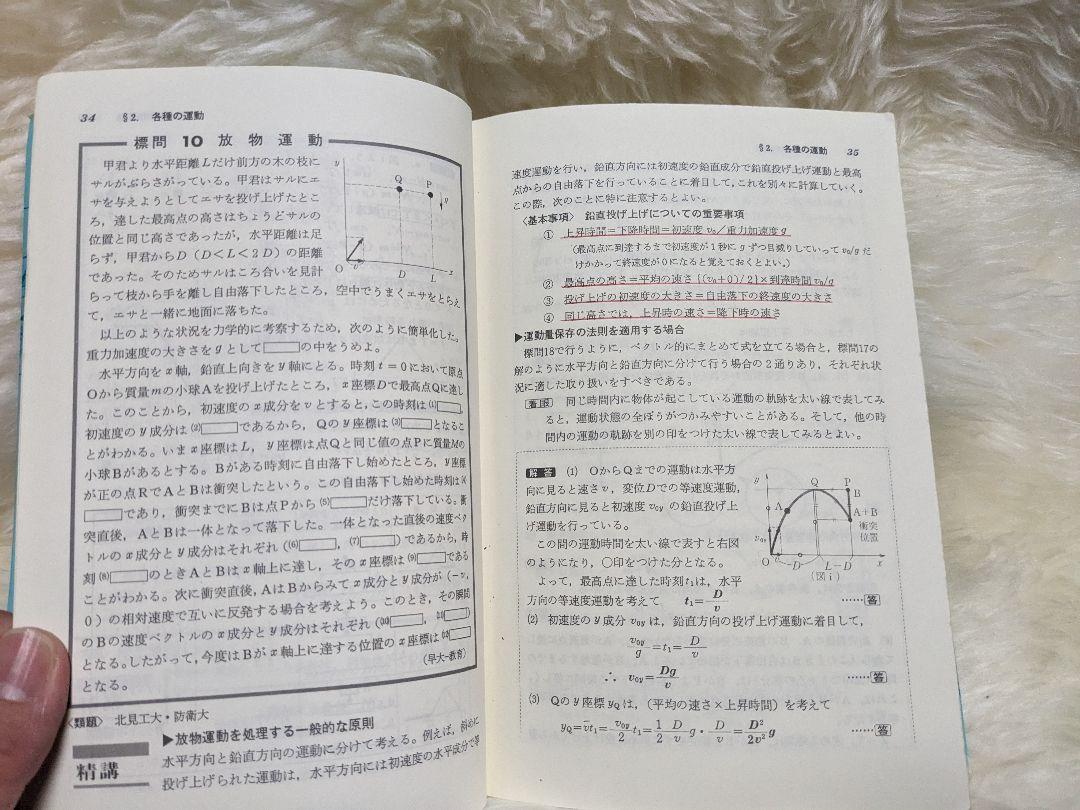 34 §2. 各種の運動
標問 10 放物運動
甲君より水平距離Lだけ前方の木の枝に
サルがぶらさがっている。甲君はサルにエ
サを与えようとしてエサを投げ上げたとこ
ろ，達した最高点の高さはちょうどサルの
位置と同じ高さであったが，水平距離は足
らず，甲君からD（D<L<2D）の距離
であった。そのためサルはころ合いを見計
らって枝から手を離し自由落下したところ，空中でうまくエサをとらえ
て，エサと一緒に地面に落ちた。
以上のような状況を力学的に考察するため，次のように簡単化した。
重力加速度の大きさをgとして□の中をうめよ。
水平方向をx軸，鉛直上向きをy軸にとる。時刻t=0において原点
Oから質量mの小球Aを投げ上げたところ，x座標Dで最高点Qに達し
た。このことから，初速度のx成分をvとすると，この時刻は(1)□，
初速度のy成分は(2)□であるから，Qのy座標は(3)□となるこ
とがわかる。いまx座標はL，y座標は点Qと同じ値の点Pに質量Mの
小球Bがあるとする。Bがある時刻に自由落下し始めたところ，y座標
が正の点RでAとBは衝突したという。この自由落下し始めた時刻は(4)
□であり，衝突までにBは点Pから(5)□だけ落下している。衝
突直後，AとBは一体となって落下した。一体となった直後の速度ベク
トルのx成分とy成分はそれぞれ（(6)□，(7)□）であるから，時
刻(8)□のときAとBはx軸上に達し，そのx座標は(9)□である
ことがわかる。次に衝突直後，AはBからみてx成分とy成分が（−v,
0）の相対速度で互いに反発する場合を考えよう。このとき，その瞬間
のBの速度ベクトルのx成分とy成分はそれぞれ（(10)□，(11)□）
となる。したがって，今度はBがx軸上に達する位置のx座標は(12)□
となる。
（早大−教育）
y Q P g O v D L x
〈類題〉 北見工大・防衛大
精講
▶放物運動を処理する一般的な原則
水平方向と鉛直方向の運動に分けて考える。例えば，斜めに
投げ上げられた運動は，水平方向には初速度の水平成分で等
§2. 各種の運動 35
速度運動を行い，鉛直方向には初速度の鉛直成分で鉛直投げ上げ運動と最高
点からの自由落下を行っていることに着目して，これを別々に計算していく。
この際，次のことに特に注意するとよい。
〈基本事項〉 鉛直投げ上げについての重要事項
① 上昇時間＝下降時間＝初速度 v₀／重力加速度 g
（最高点に到達するまで初速度が1秒にgずつ目減りしていってv₀/gだ
けかかって終速度が0になると覚えておくとよい。）
② 最高点の高さ＝平均の速さ｛(v₀+0)/2｝×到達時間 v₀/g
③ 投げ上げの初速度の大きさ＝自由落下の終速度の大きさ
④ 同じ高さでは，上昇時の速さ＝降下時の速さ
▶運動量保存の法則を適用する場合
標問18で行うように，ベクトル的にまとめて式を立てる場合と，標問17の
解のように水平方向と鉛直方向に分けて行う場合の2通りあり，それぞれ状
況に適した取り扱いをすべきである。
着眼 同じ時間内に物体が起こしている運動の軌跡を太い線で表してみ
ると，運動状態の全ぼうがつかみやすいことがある。そして，他の時
間内の運動の軌跡を別の印をつけた太い線で表してみるとよい。
解答 (1) OからQまでの運動は水平方
向に見ると速さv，変位Dでの等速度運動，
鉛直方向に見ると初速度 v₀y の鉛直投げ上
げ運動を行っている。
この間の運動時間を太い線で表すと右図
のようになり，○印をつけた分となる。
よって，最高点に達した時刻t₁は，水平
方向の等速度運動を考えて t₁=D/v ……答
y Q P B A A+B 衝突 位置 v₀y O v D L−D x
（図ⅰ）
(2) 初速度のy成分 v₀y は，鉛直方向の投げ上げ運動に着目して，
v₀y/g=t₁=D/v
∴ v₀y=Dg/v ……答
(3) Qのy座標 yQ は，（平均の速さ×上昇時間）を考えて
yQ=v̄t₁=v₀y/2 t₁=1/2 D/v g・D/v=D²/2v² g ……答